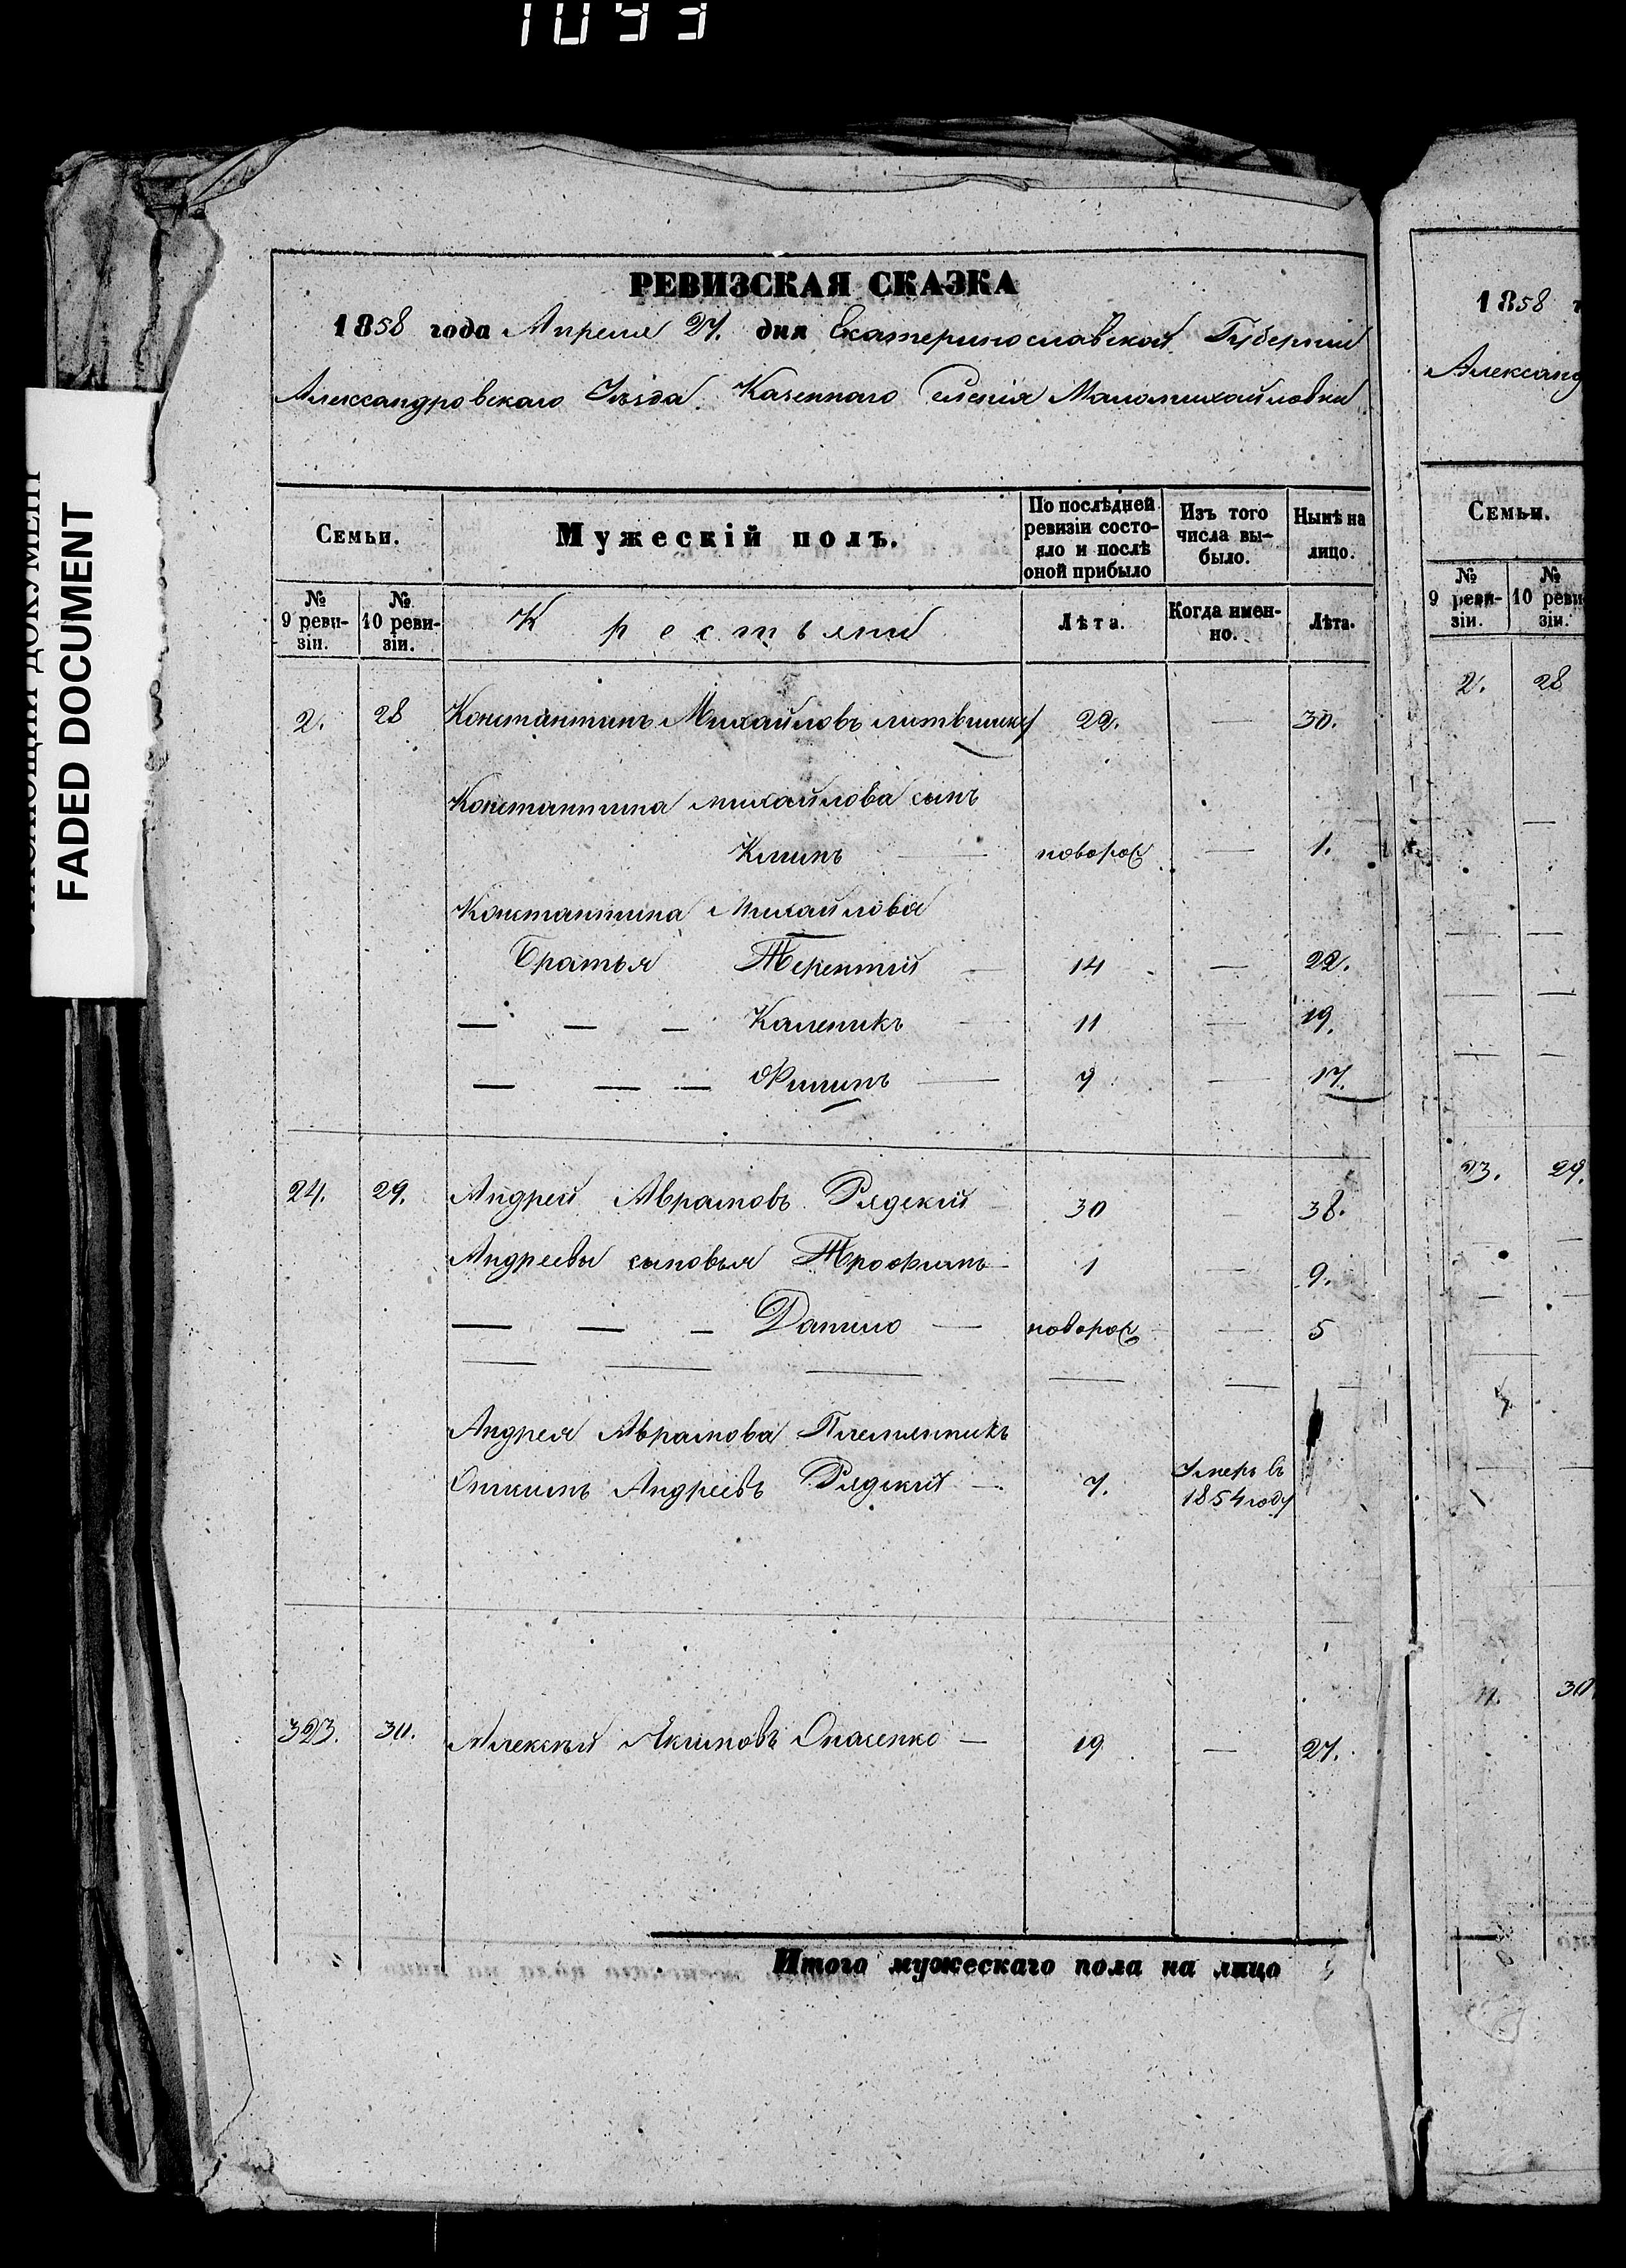 1093
FADED DOCUMENT
РЕВИЗСКАЯ СКАЗКА
1858 года Апреля 27. дня Екатеринославской Губернии
Александровскаго Уѣзда Казеннаго Селенія Маломихайловки
Семьи.
Мужескій полъ.
По послѣдней ревизіи состояло и послѣ оной прибыло
Изъ того числа выбыло.
Нынѣ на лицо.
№ 9 ревизіи.
№ 10 ревизіи.
Крестьяни
Лѣта.
Когда именно.
Лѣта.
2. 28 Константинъ Михайловъ 22. — 30.
Константина михайлова сынъ
Климъ — поворож — 1.
Константина Михайлова
Братья Терентій — 14 — 22.
— — — Каленикъ — 11 — 19.
— — — Филипъ — 9 — 17.
24. 29. Андрей Аврамовъ Рядскій — 30 — 38.
Андреевы сыновья Трофимъ — 1 — 9.
— — — Данило — — 5
Андрея Аврамова Племянникъ
Андреевъ Рядский — 7. Умеръ въ 1854 году
323. 30. Алексѣй Якимовъ Опасенко — 19 — 27.
Итого мужескаго пола на лицо
1858
Александ
Семьи.
№ 9 ревизіи.
№ 10 ревизіи.
2. 28
23. 29.
30